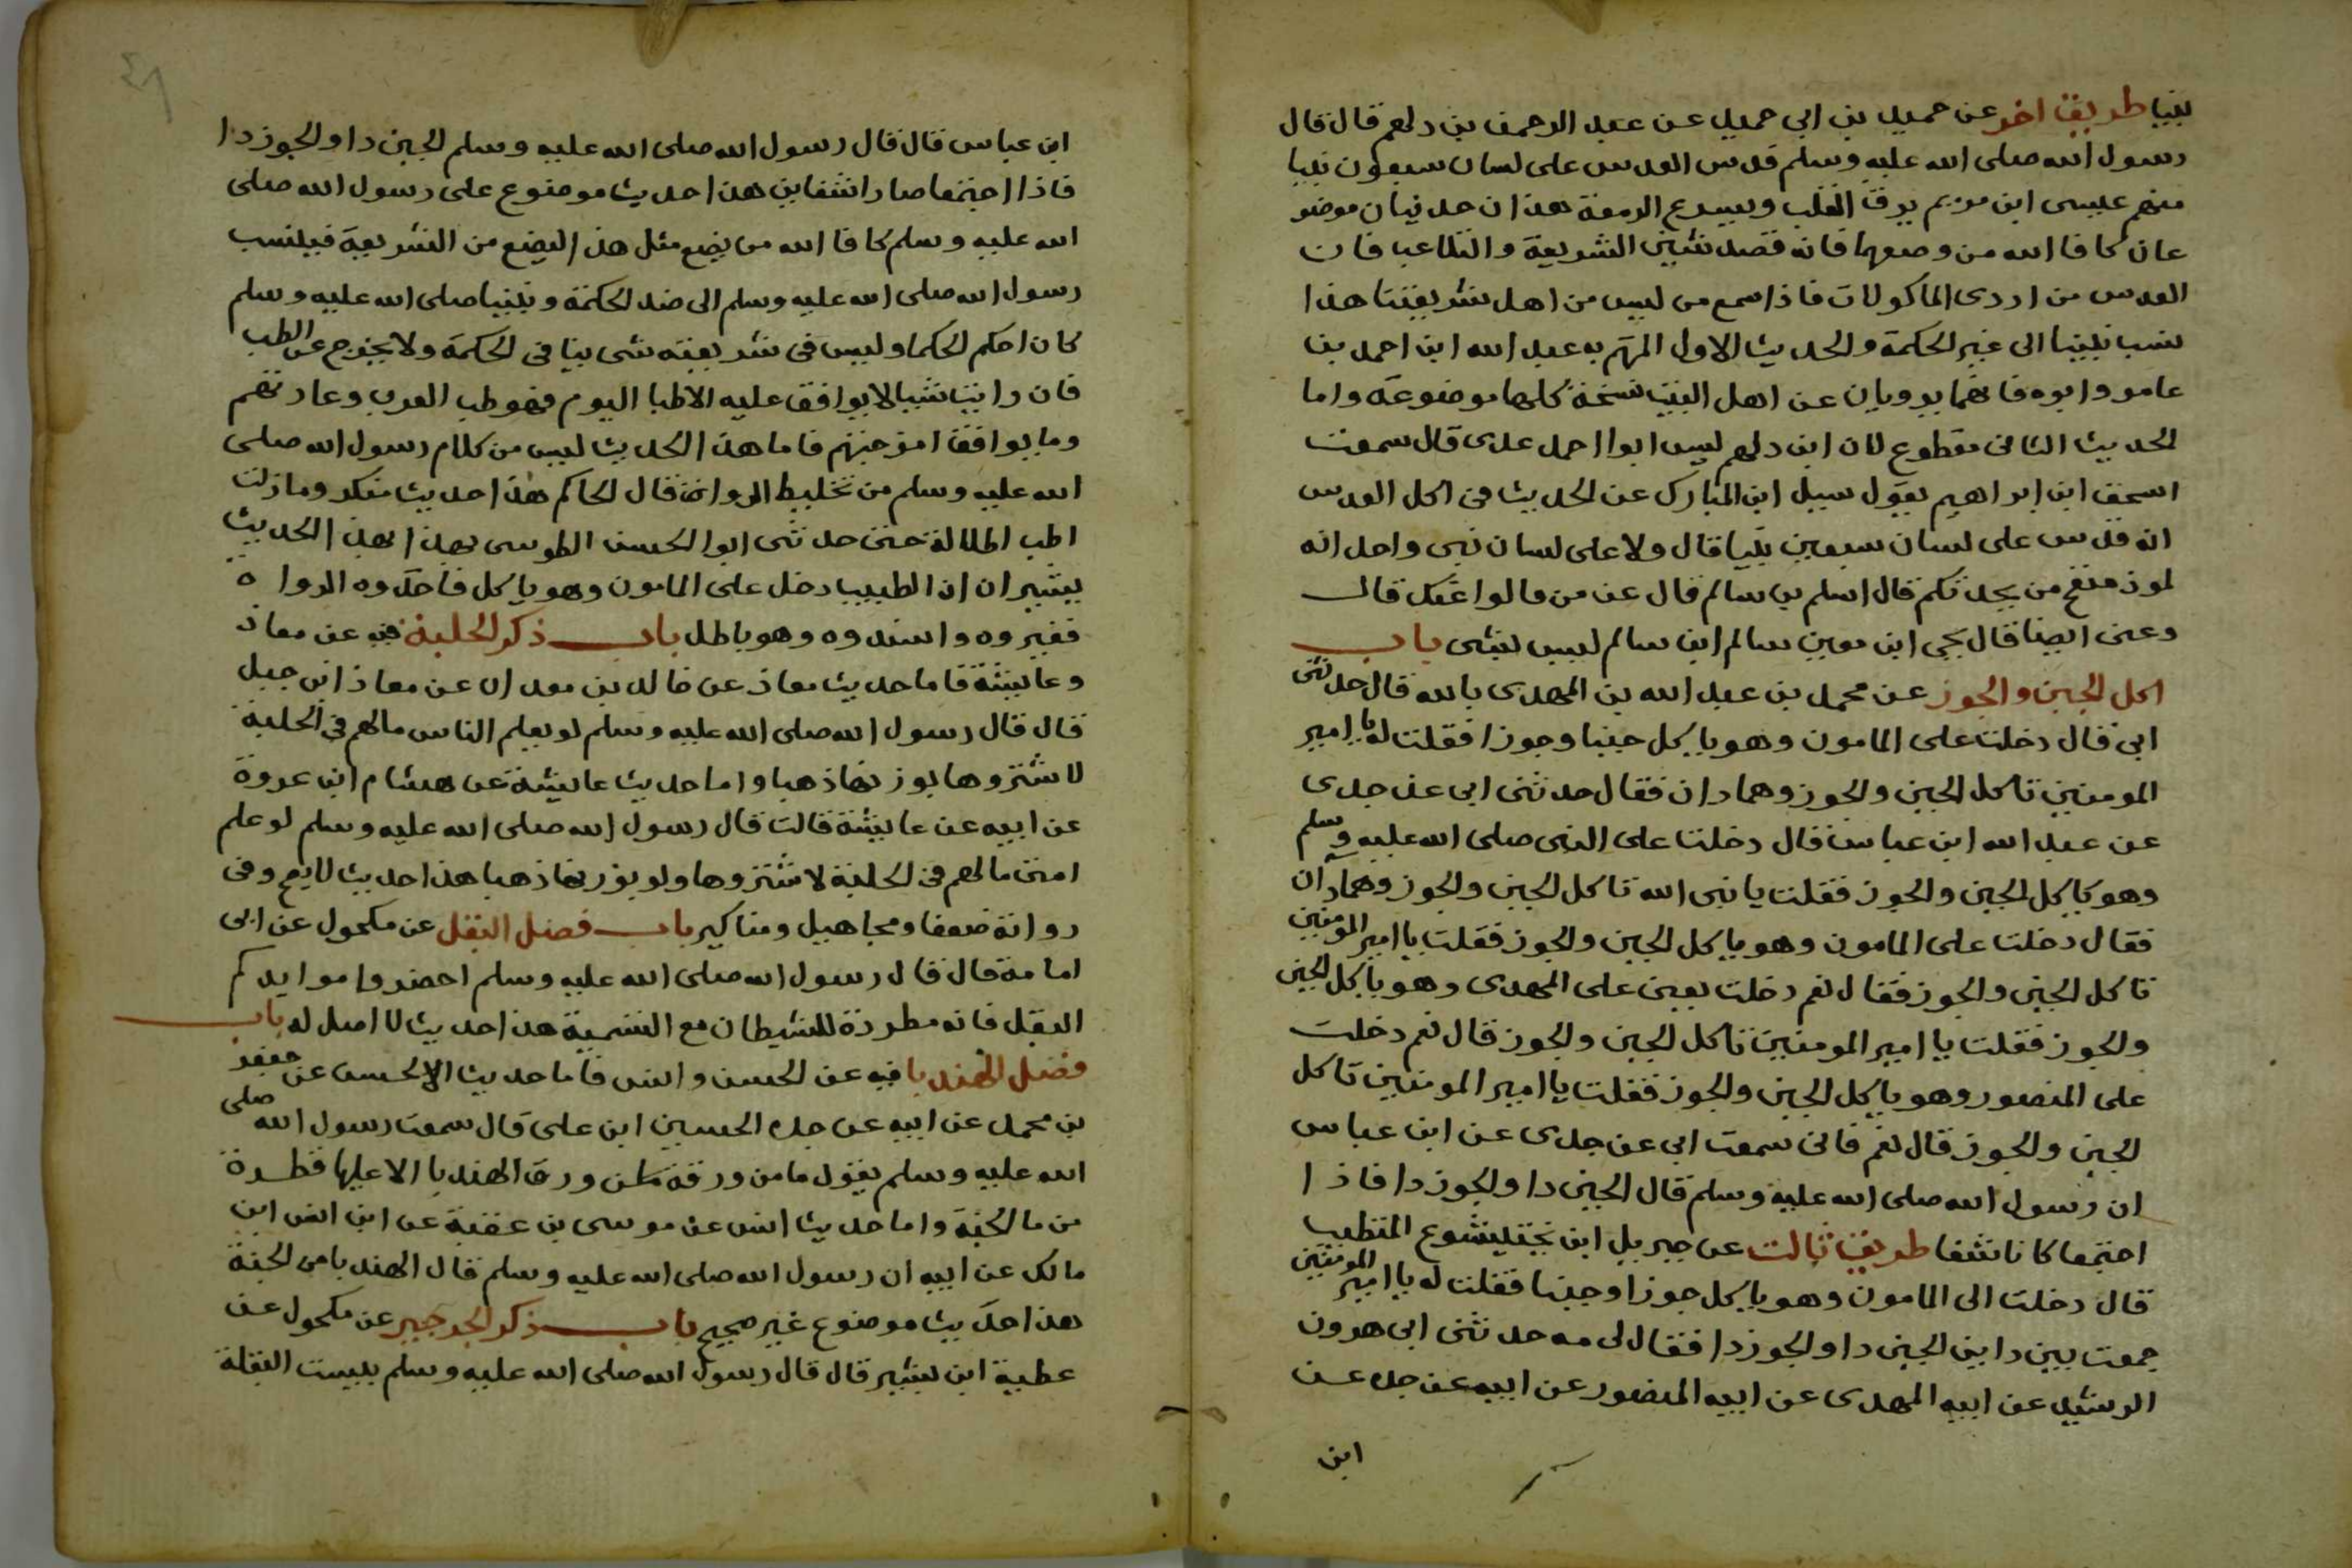 نبيا طريق اخر عن حميد بن ابي حميد عن عبد الرحمن بن دلهم قال قال
رسول الله صلى الله عليه وسلم قدس العدس على لسان سبعون نبيا
منهم عيسى ابن مريم يرق القلب ويسرع الدمعة هذان حديثان موضو
عان كافا الله من وضعهما فانه قصد شين الشريعة والتلاعب فان
العدس من اردى الماكولات فاذا سمع من ليس من اهل شريعتنا هذا
نسب نبينا الى غير الحكمة والحديث الاول المتهم به عبد الله ابن احمد بن
عامر وابوه فانهما يرويان عن اهل البيت نسخة كلها موضوعة واما
الحديث الثاني مقطوع لان ابن دلهم ليس ابوا احمد عدى قال سمعت
اسحق ابن ابراهيم يقول سيل ابن المبارك عن الحديث فى اكل العدس
انه قدس على لسان سبعين نبيا قال ولا على لسان نبى واحد انه
لموذ منفخ من يحدثكم قال اسلم بن سالم قال عن من قالوا عنك قال
وعنى ايضا قال يحي ابن معين سالم ابن سالم ليس بشى باب
اكل الجبن والجوز عن محمد بن عبد الله بن المهدى بالله قال حدثنى
ابى قال دخلت على المامون وهو ياكل جبنا وجوزا فقلت له يا امير
المومنين تاكل الجبن والجوز وهما دان فقال حدثنى ابى عن جدى
عن عبد الله ابن عباس قال دخلت على النبى صلى الله عليه وسلم
وهو ياكل الجبن والجوز فقلت يا نبى الله تاكل الجبن والجوز وهما دان
فقال دخلت على المامون وهو ياكل الجبن والجوز فقلت يا امير المومنين
تاكل الجبن والجوز فقال نعم دخلت يعنى على المهدى وهو ياكل الجبن
والجوز فقلت يا امير المومنين تاكل الجبن والجوز قال نعم دخلت
على المنصور وهو ياكل الجبن والجوز فقلت يا امير المومنين تاكل
الجبن والجوز قال نعم فانى سمعت ابى عن جدى عن ابن عباس
ان رسول الله صلى الله عليه وسلم قال الجبن دا والجوز دا فاذا
اجتمعا كانا شفا طريق ثالث عن جبريل ابن بختيشوع المتطبب
قال دخلت الى المامون وهو ياكل جوزا وجبنا فقلت له يا امير المومنين
جمعت بين داين الجبن دا والجوز دا فقال لى مه حدثنى ابى هرون
الرشيد عن ابيه المهدى عن ابيه المنصور عن ابيه عن جده عن
ابن
٤٩
ابن عباس قال قال رسول الله صلى الله عليه وسلم الجبن دا والجوز دا
فاذا اجتمعا صارا شفاين هذا حديث موضوع على رسول الله صلى
الله عليه وسلم كافا الله من يضع مثل هذا ليضع من الشريعة فينسب
رسول الله صلى الله عليه وسلم الى ضد الحكمة ونبينا صلى الله عليه وسلم
كان احكم الحكما وليس فى شريعته شى ينافى الحكمة ولا يخرج عن الطب
فان رايت شيا لا يوافق عليه الاطبا اليوم فهو طب العرب وعادتهم
وما يوافق امزجتهم فاما هذا الحديث ليس من كلام رسول الله صلى
الله عليه وسلم من تخليط الرواة قال الحاكم هذا حديث منكر وما زلت
اطلب حتى حدثنى ابوا الحسن الطوسى بهذا بهذا الحديث
ان الطبيب دخل على المامون وهو ياكل فاخذوه الرواة
فغيروه واسندوه وهو باطل باب ذكر الحلبة فيه عن معاذ
وعايشة فاما حديث معاذ عن خالد بن معدان عن معاذ ابن جبل
قال قال رسول الله صلى الله عليه وسلم لو يعلم الناس مالهم فى الحلبة
لاشتروها بوزنها ذهبا واما حديث عايشة عن هشام ابن عروة
عن ابيه عن عايشة قالت قال رسول الله صلى الله عليه وسلم لو علم
امتى مالهم فى الحلبة لاشتروها ولو بوزنها ذهبا هذا حديث لا يصح وفى
رواته ضعفا ومجاهيل ومناكير باب فضل البقل عن مكحول عن ابى
امامة قال قال رسول الله صلى الله عليه وسلم احضروا موايدكم
البقل فانه مطردة للشيطان مع التسمية هذا حديث لا اصل له باب
فضل الهندبا فيه عن الحسن وانس فاما حديث الحسن عن جعفر
بن محمد عن ابيه عن جده الحسين ابن على قال سمعت رسول الله صلى
الله عليه وسلم يقول ما من ورقة من ورق الهندبا الا عليها قطرة
من ما الجنة واما حديث انس عن موسى بن عقبة عن ابن انس ابن
مالك عن ابيه ان رسول الله صلى الله عليه وسلم قال الهندبا من الجنة
هذا حديث موضوع غير صحيح باب ذكر الجرجير عن مكحول عن
عطية ابن بشير قال قال رسول الله صلى الله عليه وسلم بيست البقلة